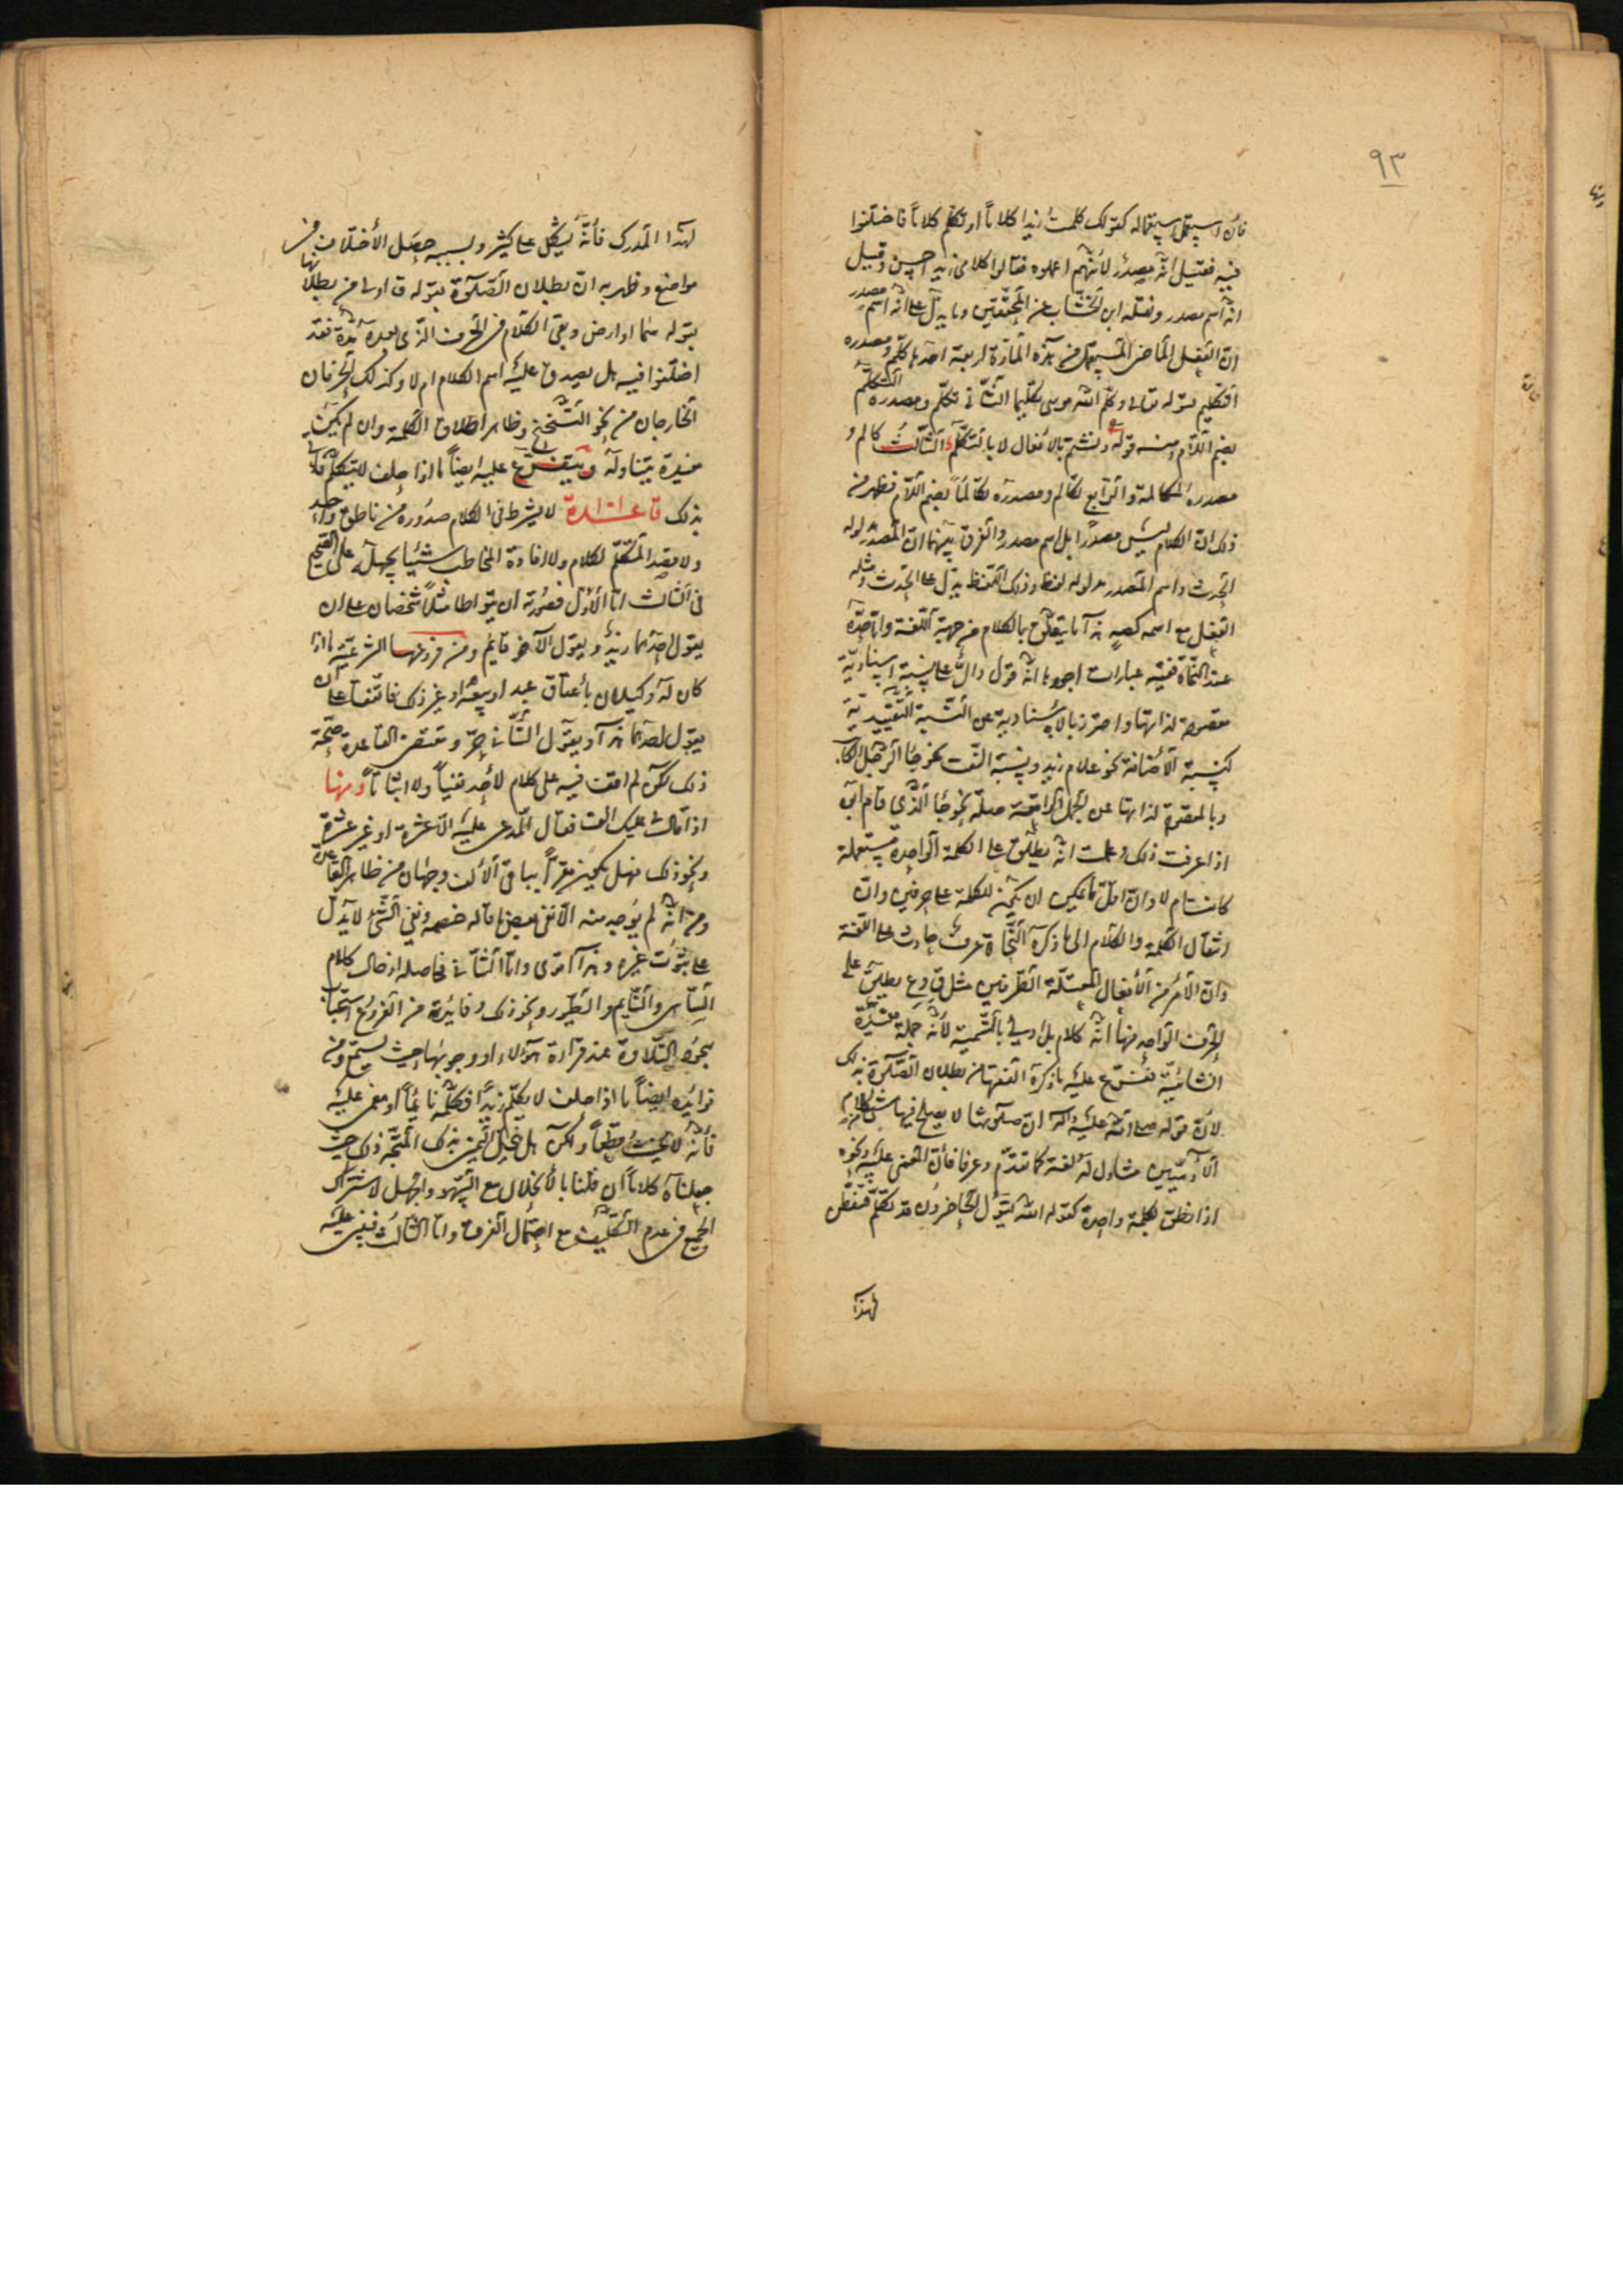 ٩٣
فان استعمل استعماله كقولك كلمت زيدا كلاماً او تكلم كلاماً فاختلفوا
فيه فقيل انه مصدر لأنهم اعملوه فقالوا كلامي زيد احسن وقيل
انه اسم مصدر ونقله ابن الخشاب عن المحققين ومما يدل على انه اسم مصدر
ان الفعل الماضي المستعمل من هذه المادة اربعة احدها كلم ومصدره
التكليم كقوله تعالى وكلم الله موسى تكليما الثاني تكلم ومصدره التكلم
بضم اللام ومنه قوله ونشتم بالأفعال لا بالتكلم الثالث كالم و
مصدره المكالمة والرابع تكالم ومصدره تكالماً بضم اللام فظهر من
ذلك ان الكلام ليس مصدراً بل اسم مصدر والفرق بينهما ان المصدر مدلوله
الحدث واسم المصدر مدلوله لفظ وذلك اللفظ يدل على الحدث ومثله
الفعل مع اسمه كصه هذا ما يتعلق بالكلام من جهة اللغة واما حده
عند النحاة ففيه عبارات اجودها انه قول دال على نسبة اسنادية
مقصودة لذاتها واحترز بالاسنادية عن النسبة التقييدية
كنسبة الأضافة نحو غلام زيد ونسبة النعت نحو جاء الرجل الكا
وبالمقصودة لذاتها عن الجمل الواقعة صلة نحو جاء الذي قام ابوه
اذا عرفت ذلك وعلمت انه يطلق على الكلمة الواحدة مستعملة
كانت ام لا وان اقل ما يمكن ان يكون للكلمة على حرفين وان
انتقال الكلمة والكلام الى ما ذكره النحاة عرف حادث على اللغة
وان الأمر من الأفعال المعتلة الطرفين مثل ق و ع يطلق على
الحرف الواحد منها انه كلام بل اولى بالتسمية لأنه جملة مفيدة
فتفرع عليه ما ذكره الفقهاء من بطلان الصلوة بذلك
لأن قوله صلى الله عليه وآله ان صلوتنا لا يصلح فيها شئ من كلام
الآدميين متناول له لغة كما تقدم وعرفا فأن المغمى عليه ونحوه
اذا نطق بكلمة واحدة كقوله الله يقول الحاضرون قد تكلم فتفطن
لهذا
لهذا المدرك فأنه يشكل على كثير وبسببه حصل الأختلاف في
مواضع وظهر به ان بطلان الصلوة بقوله ق اولى من بطلانها
بقوله سما او ارض وبقى الكلام في الحرف الذي بعده مدة فقد
اختلفوا فيه هل يصدق عليه اسم الكلام ام لا وكذلك الحرفان
الخارجان من نحو التنحنح وظاهر اطلاق الكلمة وان لم تكن
مفيدة يتناوله ويتفرع عليه ايضاً ما اذا حلف لا يتكلم فاتى
بذلك قاعدة لا يشترط في الكلام صدوره من ناطق واحد
ولا قصد المتكلم لكلامه ولا افادة المخاطب شيئا يجهله على الصحيح
في الثالث اما الأول فصورته ان يتواطا مثلاً شخصان على ان
يقول احدهما زيد ويقول الآخر قايم ومن فروعها الشرعية ما اذا
كان له وكيلان بأعتاق عبد او بيعه او غير ذلك فاتفقا على ان
يقول احدهما هذا ويقول الثاني حر ومقتضى القاعدة صحة
ذلك لكن لم اقف فيه على كلام لأحد نفياً ولا اثباتاً ومنها
اذا قال لي عليك الف فقال المدعى عليه الا عشرة او غير عشرة
ونحو ذلك فهل يكون مقراً بباقي الألف وجهان من ظاهر القاعدة
ومن انه لم يوجد منه الا نفي بعض ما قاله خصمه ونفي الشئ لا يدل
على ثبوت غيره وهذا اقوى واما الثاني فحاصله ادخال كلام
الساهي والنايم والطيور ونحو ذلك وفايدته من الفروع استحباب
سجود التلاوة عند قراءة هؤلاء او وجوبها حيث يسمع ومن
فوائده ايضاً ما اذا حلف لا يكلم زيداً فكلمه نائماً او مغمى عليه
فأنه لا يحنث قطعاً ولكن هل ينحل اليمين بذلك المتجه ذلك حيث
جعلناه كلاماً ان قلنا بالأنحلال مع السهو والجهل لاشتراك
الجميع في عدم التكليف مع احتمال الفرق واما الثالث فيبنى عليه